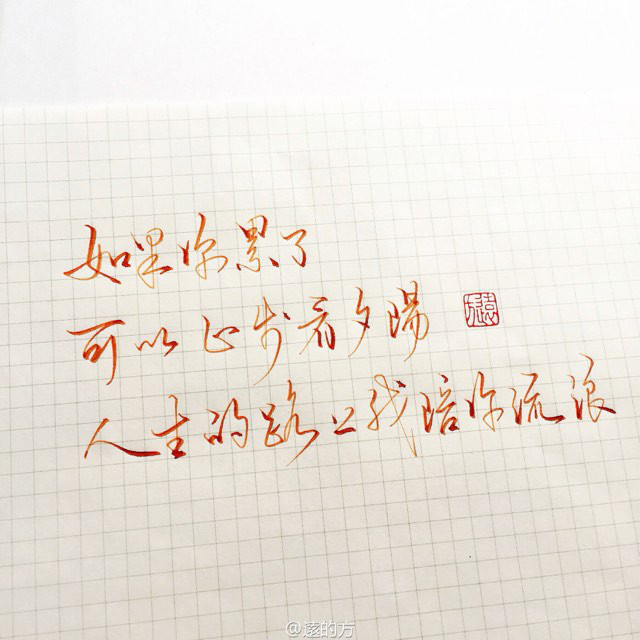 如果你累了
可以止步看夕陽
人生的路上我陪你流浪
@遂的方